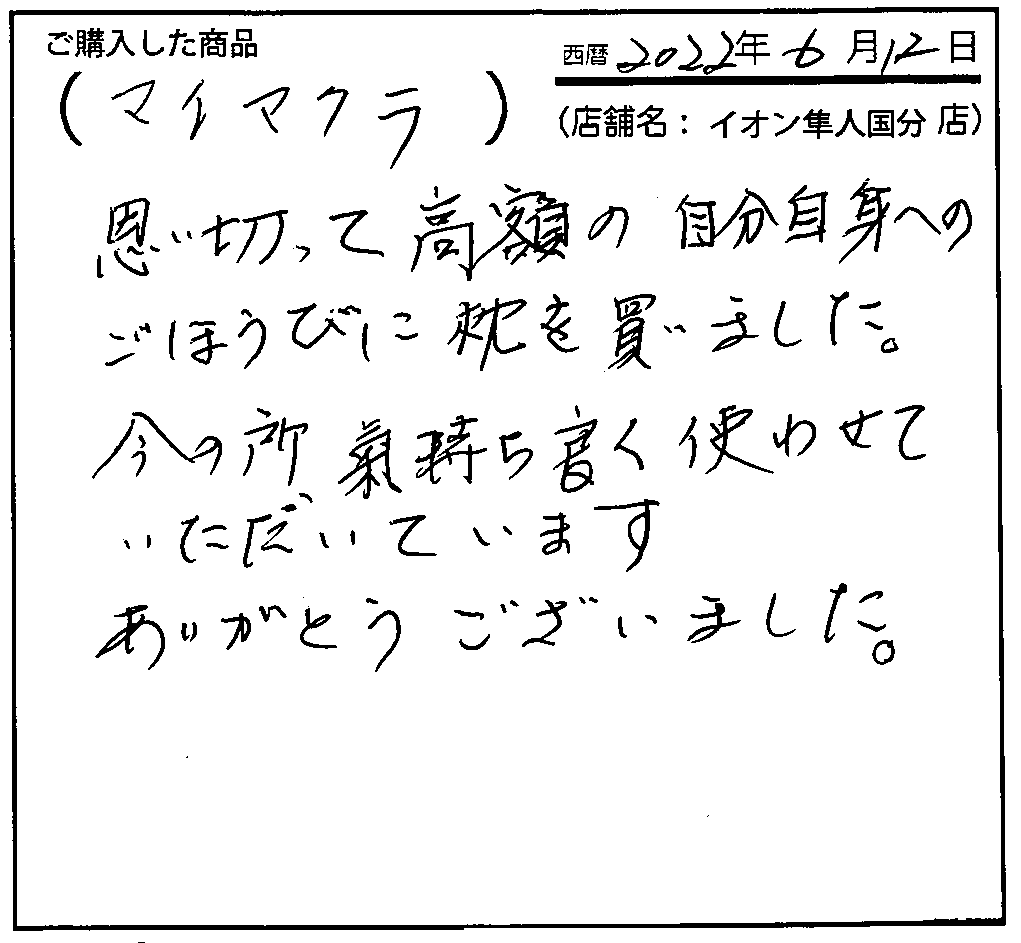 ご購入した商品
西暦 2022年 6月12日
(マイマクラ)
(店舗名: イオン隼人国分 店)
思い切って高額の自分自身への
ごほうびに枕を買いました。
今の所 氣持ち良く使わせて
いただいています
ありがとうございました。